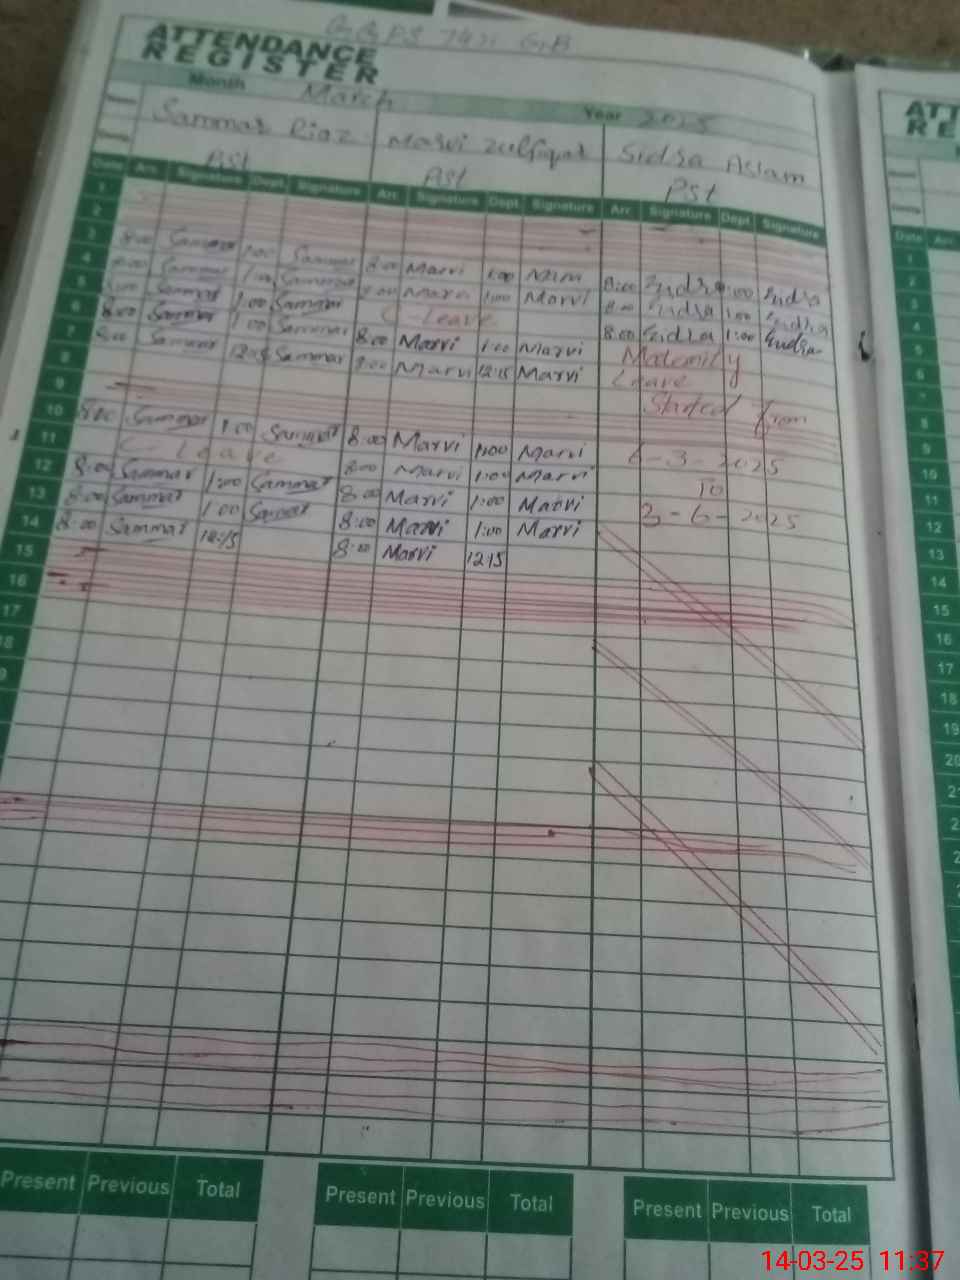 ATTENDANCE
REGISTER
Month March Year 2025
Sammar Riaz Marvi Zulfiqar Sidsa Aslam
PST PST
Date Arr. Signature Dept. Signature Arr. Signature Dept. Signature Arr. Signature Dept. Signature
1
2
3 8:00 Sammar 1:00 Sammar 8:00 Marvi 1:00 8:00 1:00
4 8:00 Sammar 1:00 Sammar 8:00 1:00 Marvi 8:00 1:00
5 8:00 Sammar 1:00 Sammar C Leave 8:00 1:00
6 8:00 Sammar 1:00 Sammar 8:00 Marvi 1:00 Marvi Maternity
7 8:00 Sammar 12:15 Sammar 8:00 Marvi 12:15 Marvi Leave
8 Started from
9
10 8:00 Sammar 1:00 Sammar 8:00 Marvi 1:00 Marvi 6-3-2025
11 C Leave 8:00 Marvi 1:00 Marvi To
12 8:00 Sammar 1:00 Sammar 8:00 Marvi 1:00 Marvi 3-6-2025
13 8:00 Sammar 1:00 Sammar 8:00 Marvi 1:00 Marvi
14 8:00 Sammar 12:15 8:00 Marvi 12:15
15
16
17
18
9
Present Previous Total Present Previous Total Present Previous Total
ATT
RE
Date Arr.
1
2
3
4
5
6
7
8
9
10
11
12
13
14
15
16
17
18
19
20
14-03-25 11:37